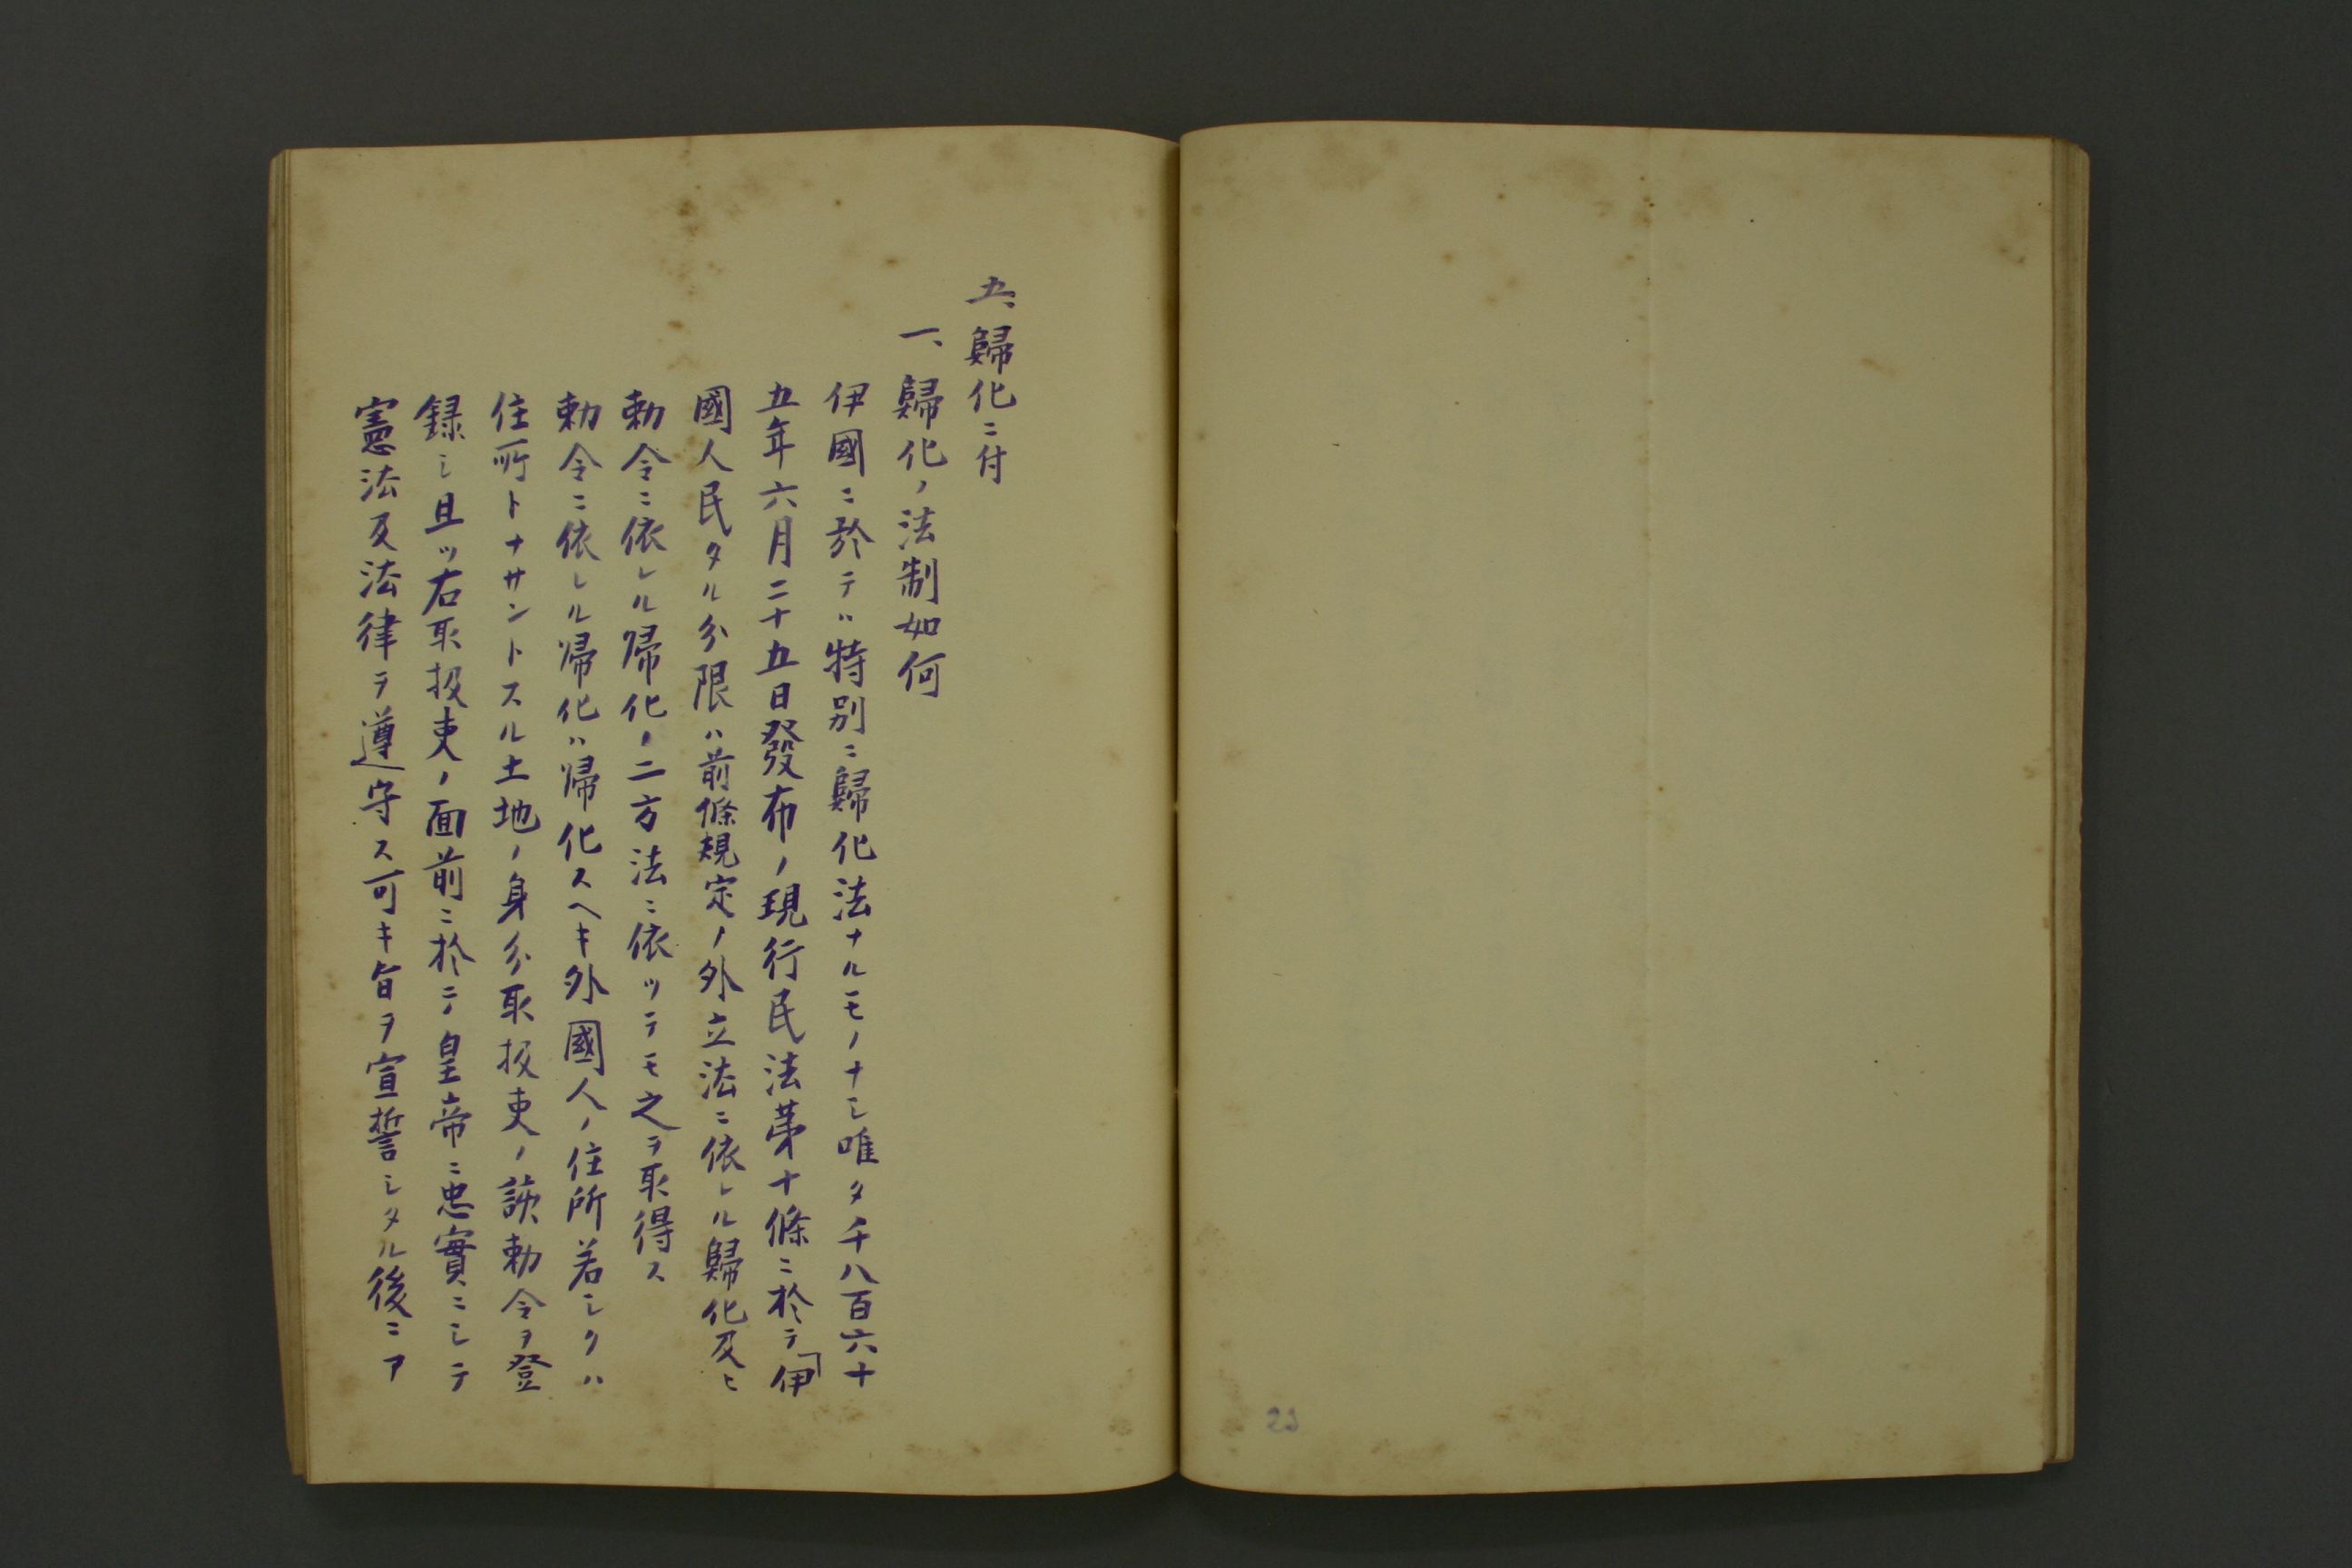 五、歸化ニ付
一、歸化ノ法制如何
伊國ニ於テハ特別ニ歸化法ナルモノナシ唯タ千八百六十
五年六月二十五日發布ノ現行民法第十條ニ於テ「伊
國人民タル分限ハ前條規定ノ外立法ニ依レル歸化及ヒ
勅令ニ依レル帰化ノ二方法ニ依ツテモ之ヲ取得ス
勅令ニ依レル帰化ハ帰化スヘキ外國人ノ住所若シクハ
住所トナサントスル土地ノ身分取扱吏ノ該勅令ヲ登
録シ且ツ右取扱吏ノ面前ニ於テ皇帝ニ忠實ニシテ
憲法及法律ヲ遵守ス可キ旨ヲ宣誓シタル後ニア
23